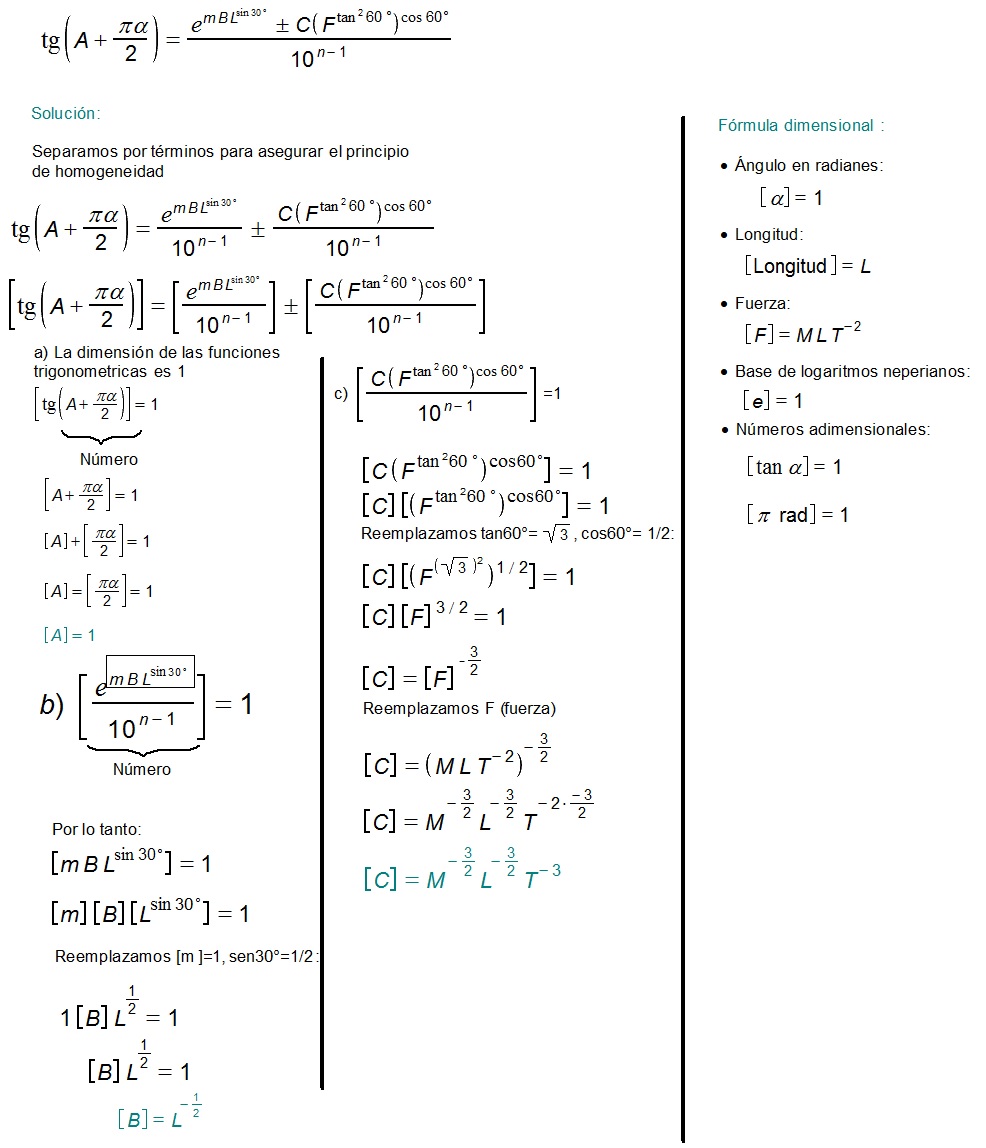 tg(A + πα/2) = (e^(m B L^(sin 30°)) ± C(F^(tan² 60 °))^(cos 60°))/10^(n−1)
Solución:
Separamos por términos para asegurar el principio
de homogeneidad
tg(A + πα/2) = e^(m B L^(sin 30°))/10^(n−1) ± C(F^(tan² 60 °))^(cos 60°)/10^(n−1)
[tg(A + πα/2)] = [e^(m B L^(sin 30°))/10^(n−1)] ± [C(F^(tan² 60 °))^(cos 60°)/10^(n−1)]
a) La dimensión de las funciones
trigonometricas es 1
[tg(A + πα/2)] = 1
Número
[A + πα/2] = 1
[A] + [πα/2] = 1
[A] = [πα/2] = 1
[A] = 1
b) [e^(m B L^(sin 30°))/10^(n−1)] = 1
Número
Por lo tanto:
[m B L^(sin 30°)] = 1
[m][B][L^(sin 30°)] = 1
Reemplazamos [m ]=1, sen30°=1/2:
1[B] L^(1/2) = 1
[B] L^(1/2) = 1
[B] = L^(−1/2)
c) [C(F^(tan² 60 °))^(cos 60°)/10^(n−1)] =1
[C(F^(tan²60 °))^(cos60°)] = 1
[C][(F^(tan²60 °))^(cos60°)] = 1
Reemplazamos tan60°= √3 , cos60°= 1/2:
[C][(F^((√3)²))^(1/2)] = 1
[C][F]^(3/2) = 1
[C] = [F]^(−3/2)
Reemplazamos F (fuerza)
[C] = (M L T^(−2))^(−3/2)
[C] = M^(−3/2) L^(−3/2) T^(−2·(−3)/2)
[C] = M^(−3/2) L^(−3/2) T^(−3)
Fórmula dimensional :
• Ángulo en radianes:
[α] = 1
• Longitud:
[Longitud] = L
• Fuerza:
[F] = M L T^(−2)
• Base de logaritmos neperianos:
[e] = 1
• Números adimensionales:
[tan α] = 1
[π rad] = 1